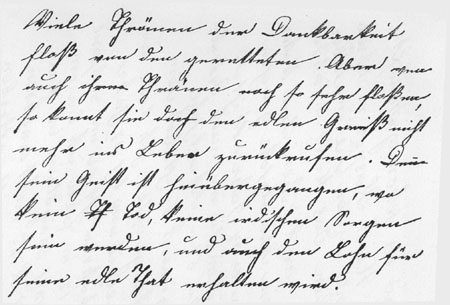 Viele Thrämen der Dankbarkeit
floß von den geretteten. Aber wen
auch ihren Thränen noch so sehr floßen,
so konnt sie doch den edlen Greiß nicht
mehr ins Leben zurückrufen. Denn
sein Geist ist hinübergegangen, wo
kein Tod, keine irdischen Sorgen
sein werden, und auch den Lohn für
seine edle That erhalten wird.